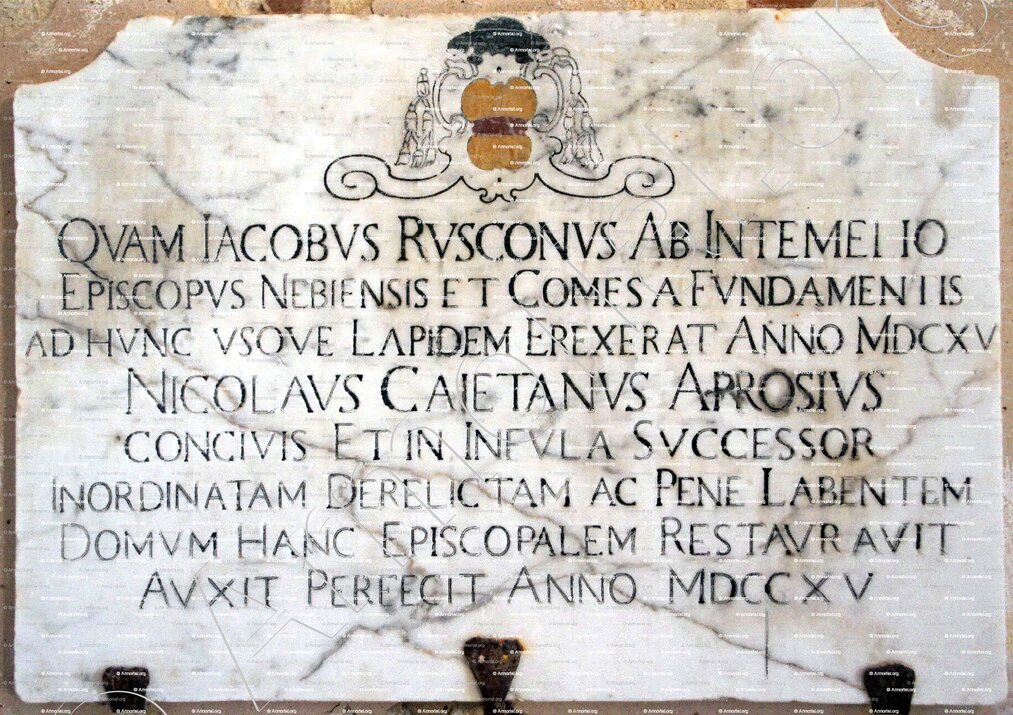 QVAM IACOBVS RVSCONVS AB INTEMELIO
EPISCOPVS NEBIENSIS ET COMES A FVNDAMENTIS
AD HVNC VSQVE LAPIDEM EREXERAT ANNO MDCXV
NICOLAVS CAIETANVS APROSIVS
CONCIVIS ET IN INFVLA SVCCESSOR
INORDINATAM DERELICTAM AC PENE LABENTEM
DOMVM HANC EPISCOPALEM RESTAVRAVIT
AVXIT PERFECIT ANNO MDCCXV